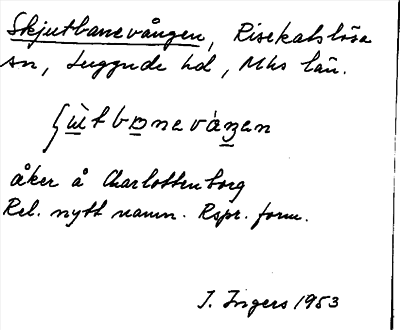 Skjutbanevången, Risekatslösa
sn, Luggude hd, Mhs län.
ʃɯ̀t bɒneváŋen
åker å Charlottenborg
Rel. nytt namn. Rspr. form.
I. Ingers 1953